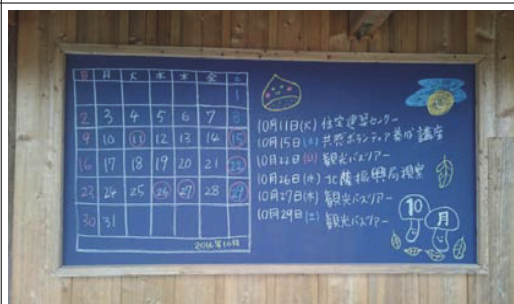 日 月 火 水 木 金 土
1
2 3 4 5 6 7 8
9 10 11 12 13 14 15
16 17 18 19 20 21 22
23 24 25 26 27 28 29
30 31
2016年10月
10月11日(火) 住宅建築センター
10月15日(土) ボランティア養成講座
10月22日(日) 観光バスツアー
10月26日(水) 振興局視察
10月27日(木) 観光バスツアー
10月29日(土) 観光バスツアー
10月